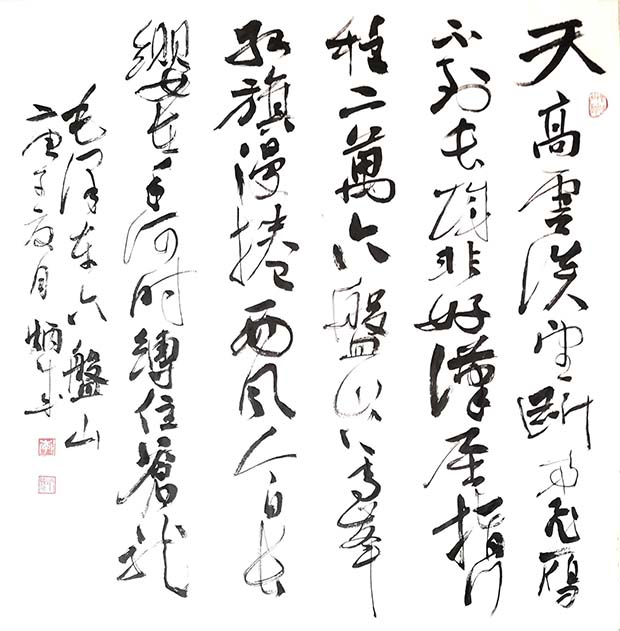 天高雲淡望斷南飛鴈
不到長城非好漢屈指行
程二萬六盤山上高峰
紅旗漫捲西風今日長
纓在手何时縛住蒼龍
毛澤東六盤山
庚子夏月炳